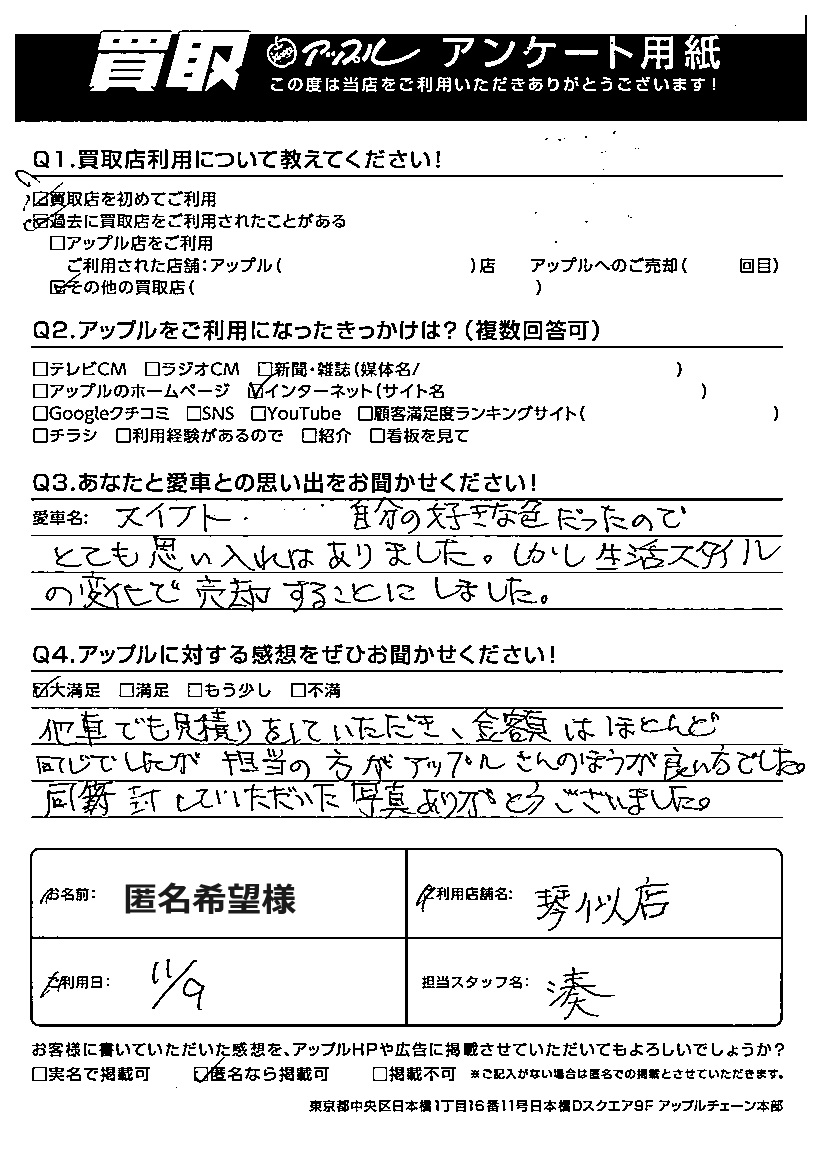 買取 アップル アンケート用紙
この度は当店をご利用いただきありがとうございます!
Q1.買取店利用について教えてください!
☑買取店を初めてご利用
☑過去に買取店をご利用されたことがある
□アップル店をご利用
ご利用された店舗:アップル( )店 アップルへのご売却( 回目)
☑その他の買取店( )
Q2.アップルをご利用になったきっかけは?(複数回答可)
□テレビCM □ラジオCM □新聞・雑誌(媒体名/ )
□アップルのホームページ ☑インターネット(サイト名 )
□Googleクチコミ □SNS □YouTube □顧客満足度ランキングサイト( )
□チラシ □利用経験があるので □紹介 □看板を見て
Q3.あなたと愛車との思い出をお聞かせください!
愛車名: スイフト 自分の好きな色だったので
とても思い入れはありました。しかし生活スタイル
の変化で売却することにしました。
Q4.アップルに対する感想をぜひお聞かせください!
☑大満足 □満足 □もう少し □不満
他車でも見積りをしていただき、金額はほとんど
同じでしたが担当の方がアップルさんのほうが良い方でした。
同封していただいた写真ありがとうございました。
お名前: 匿名希望様 ご利用店舗名: 琴似店
ご利用日: 11/9 担当スタッフ名: 湊
お客様に書いていただいた感想を、アップルHPや広告に掲載させていただいてもよろしいでしょうか?
□実名で掲載可 ☑匿名なら掲載可 □掲載不可 ※ご記入がない場合は匿名での掲載とさせていただきます。
東京都中央区日本橋1丁目16番11号日本橋Dスクエア9F アップルチェーン本部